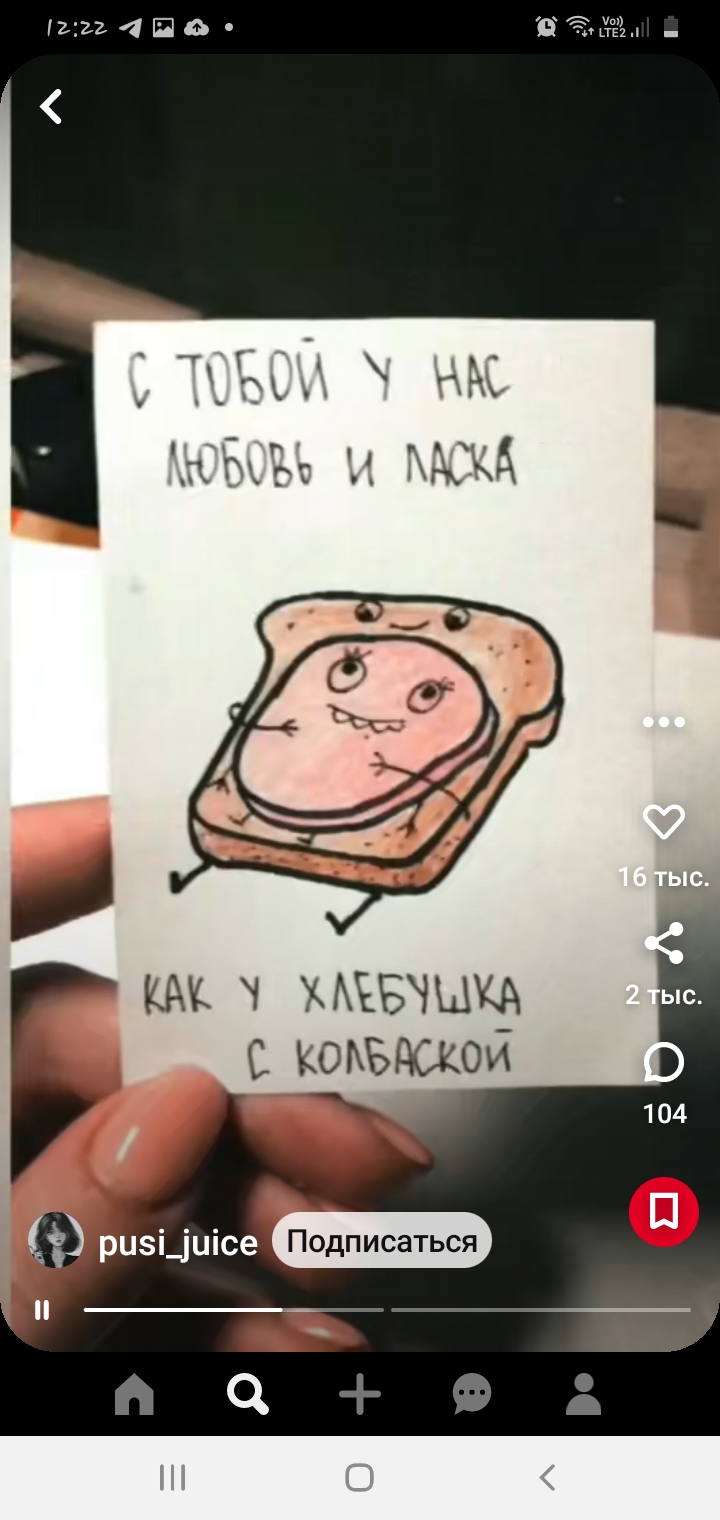 12:22
Vo))
LTE2
С ТОБОЙ У НАС
ЛЮБОВЬ И ЛАСКА
КАК У ХЛЕБУШКА
С КОЛБАСКОЙ
16 тыс.
2 тыс.
104
pusi_juice Подписаться